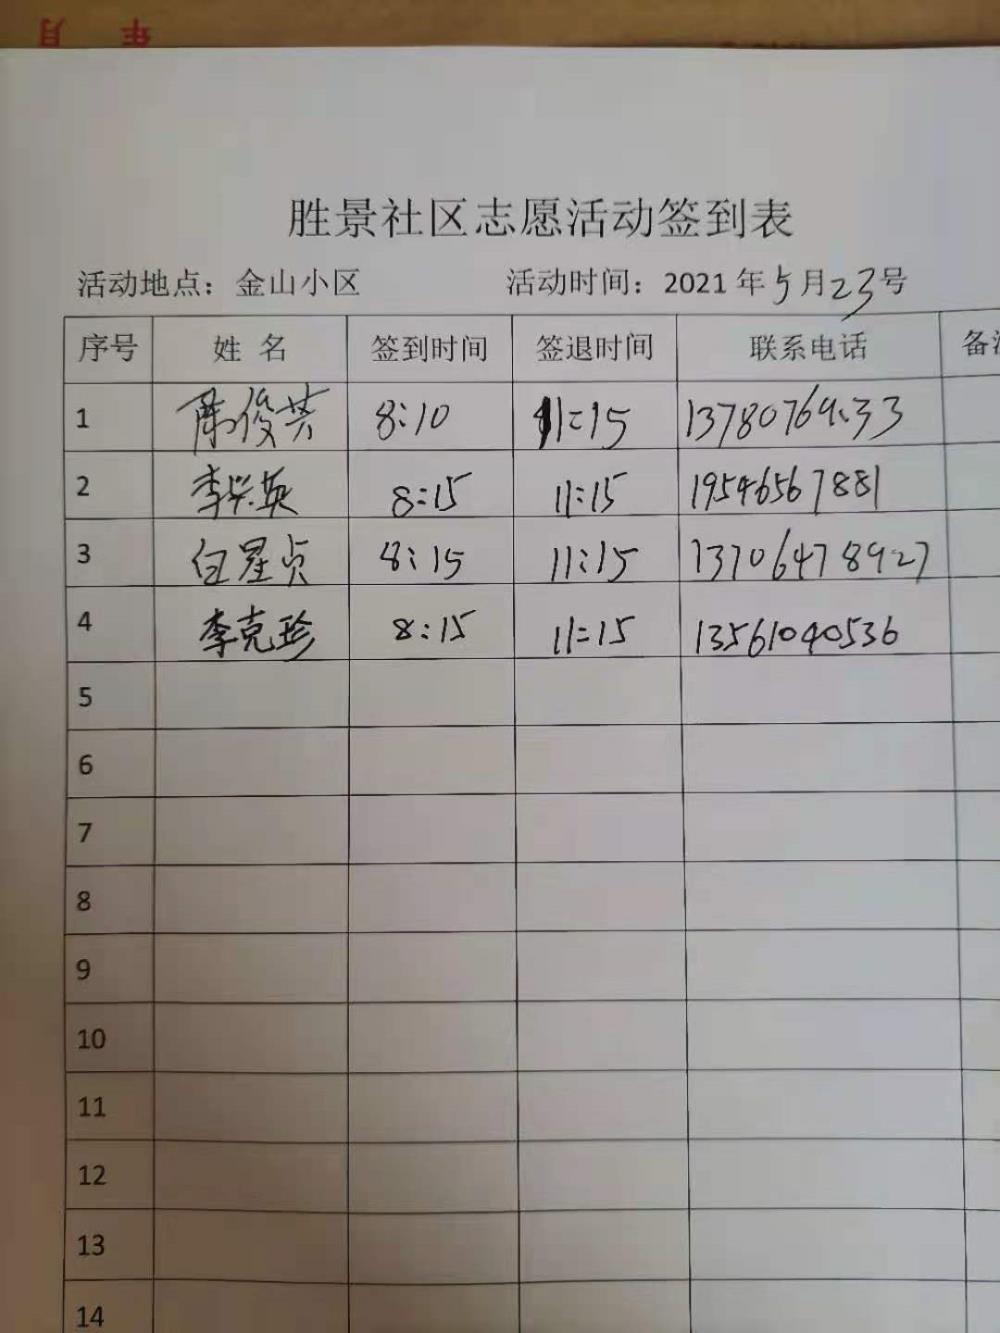 年 月
胜景社区志愿活动签到表
活动地点：金山小区 活动时间：2021年5月23号
序号 姓名 签到时间 签退时间 联系电话
1 陈俊芳 8:10 11:15
2 李兴英 8:15 11:15 19546567881
3 白星贞 8:15 11:15 13706478927
4 李克珍 8:15 11:15 13561040536
5
6
7
8
9
10
11
12
13
14